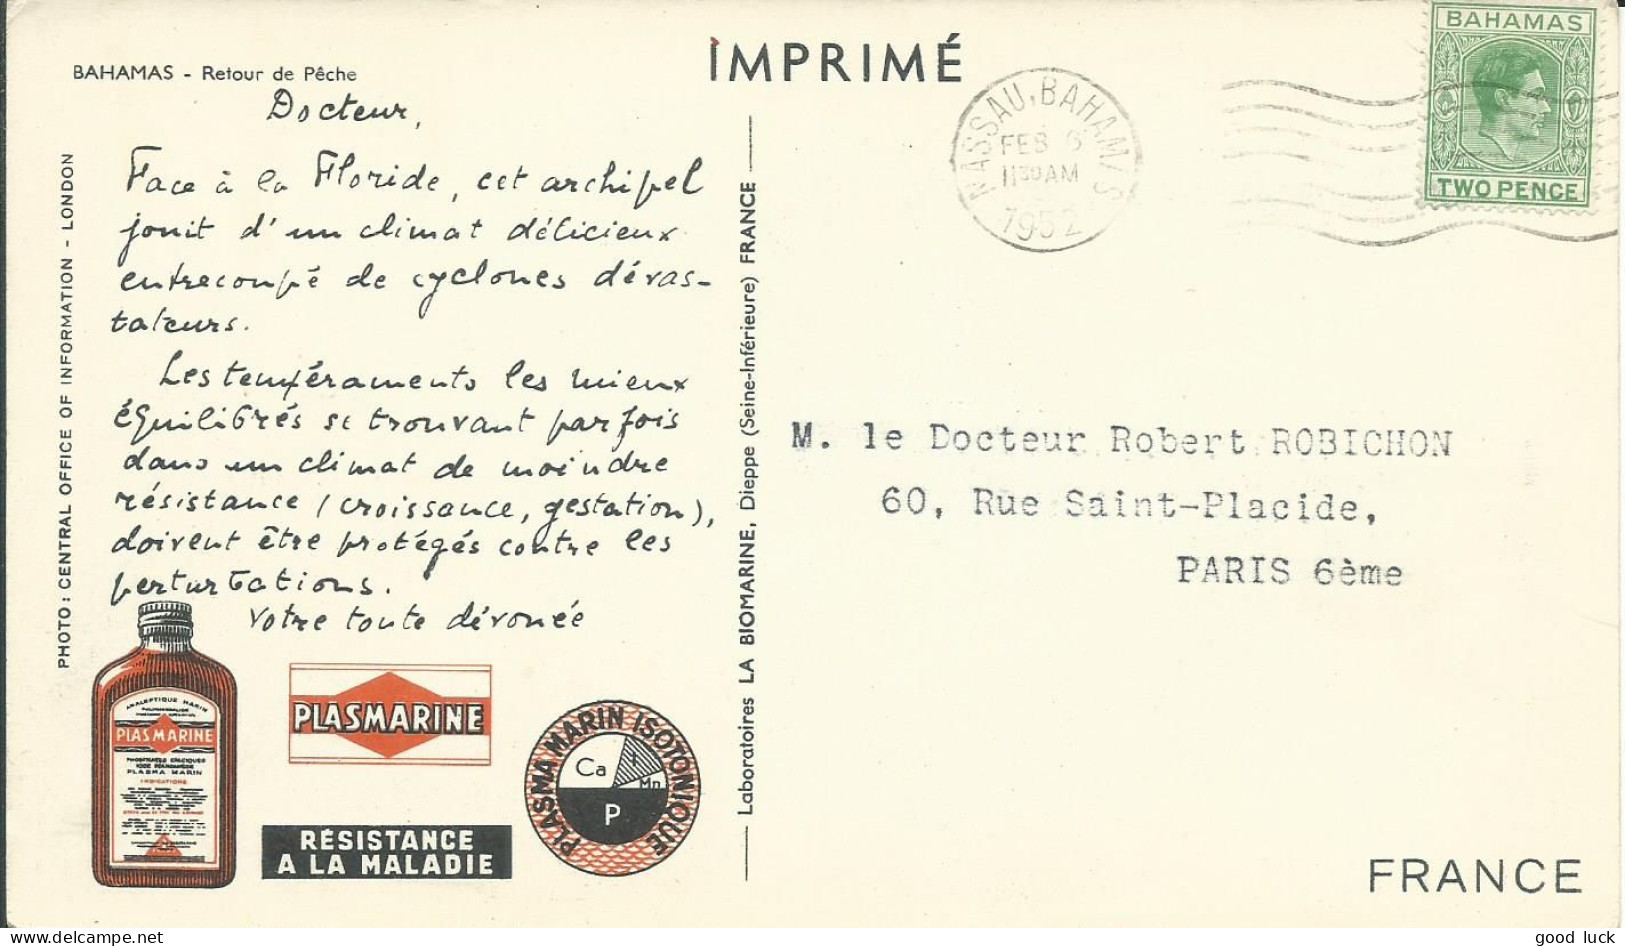 IMPRIMÉ
BAHAMAS - Retour de Pêche
Docteur,
Face à la Floride, cet archipel
jouit d'un climat délicieux
entrecoupé de cyclones dévas-
tateurs.
Les tempéraments les mieux
équilibrés se trouvant parfois
dans un climat de moindre
résistance (croissance, gestation),
doivent être protégés contre les
perturbations.
Votre toute dévouée
PHOTO: CENTRAL OFFICE OF INFORMATION - LONDON
ANALEPTIQUE MARIN
PLASMARINE
PLASMA MARIN
INDICATIONS
PLASMARINE
RÉSISTANCE
A LA MALADIE
PLASMA MARIN ISOTONIQUE
Ca
I
Mn
P
Laboratoires LA BIOMARINE, Dieppe (Seine-Inférieure) FRANCE
NASSAU, BAHAMAS
FEB 6
11 30 AM
1952
BAHAMAS
TWO PENCE
M. le Docteur Robert ROBICHON
60, Rue Saint-Placide,
PARIS 6ème
FRANCE
good luck